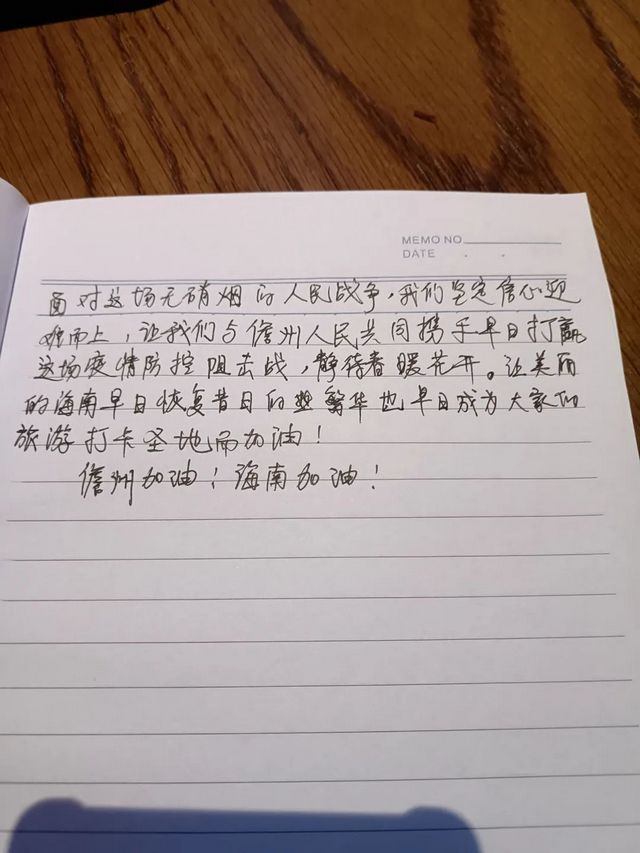 MEMO NO
DATE . .
面对这场无硝烟的人民战争，我们坚定信心迎
难而上，让我们与儋州人民共同携手早日打赢
这场疫情防控阻击战，静待春暖花开。让美丽
的海南早日恢复昔日的繁华也早日成为大家的
旅游打卡圣地而加油！
儋州加油！海南加油！